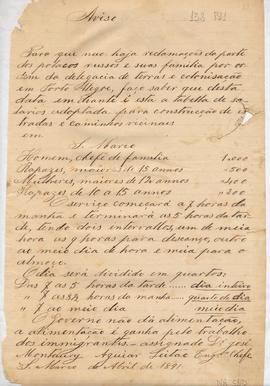 Aviso
138 RV1
Para que não haja reclamações da parte
dos polacos russos e suas familia por or-
dem da delegacia de terras e colonisação
em Porto Alegre, faço saber que desta
data em diante é esta a tabella de sa-
larios adoptada para construcção de es-
tradas e caminhos vicinaes
em
S. Marco
Homem, chefe de familia 1.000
Rapazes, maiores de 15 annos 500
Mulheres, maiores de 12 annos 400
Rapazes de 10 a 15 annos 200
O serviço começará a 7 horas da
manhã e terminará as 5 horas da tar-
de, tendo dois intervallos, um de meia
hora as 9 horas para descanço, outro
ao meio dia de hora e meia para o
almoço.
O dia será dividido em quartos:
Das 7 as 5 horas da tarde dia inteiro
" 7 as horas da manhã quarto de dia
" 7 ao meio dia meio dia
O Governo não dá alimentação,
a alimentação é ganha pelo trabalho
dos immigrantes - assignado Dr José
Montaury Aguiar Leitão Engº Chefe
S. Marco de Abril de 1891.